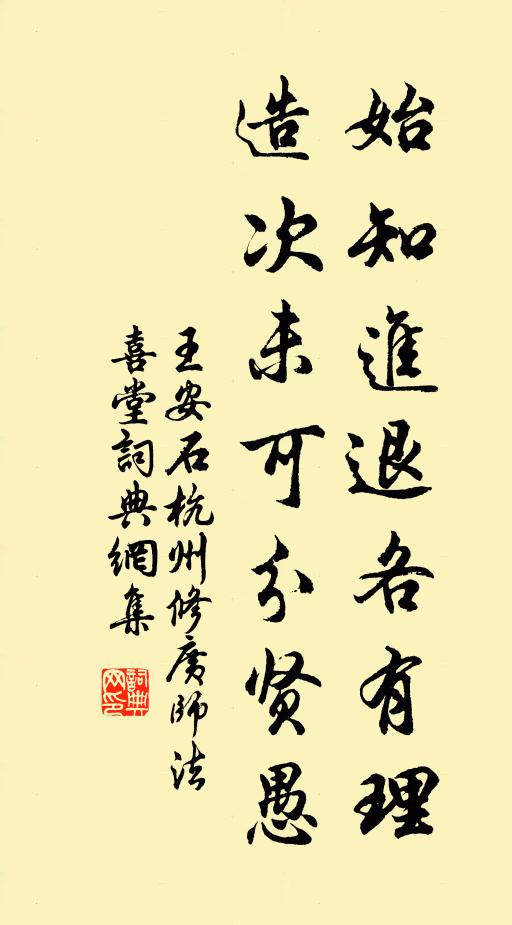 始知進退各有理
造次未可分贤愚
王安石杭州修廣師法
喜堂詞典網集
詞典网印